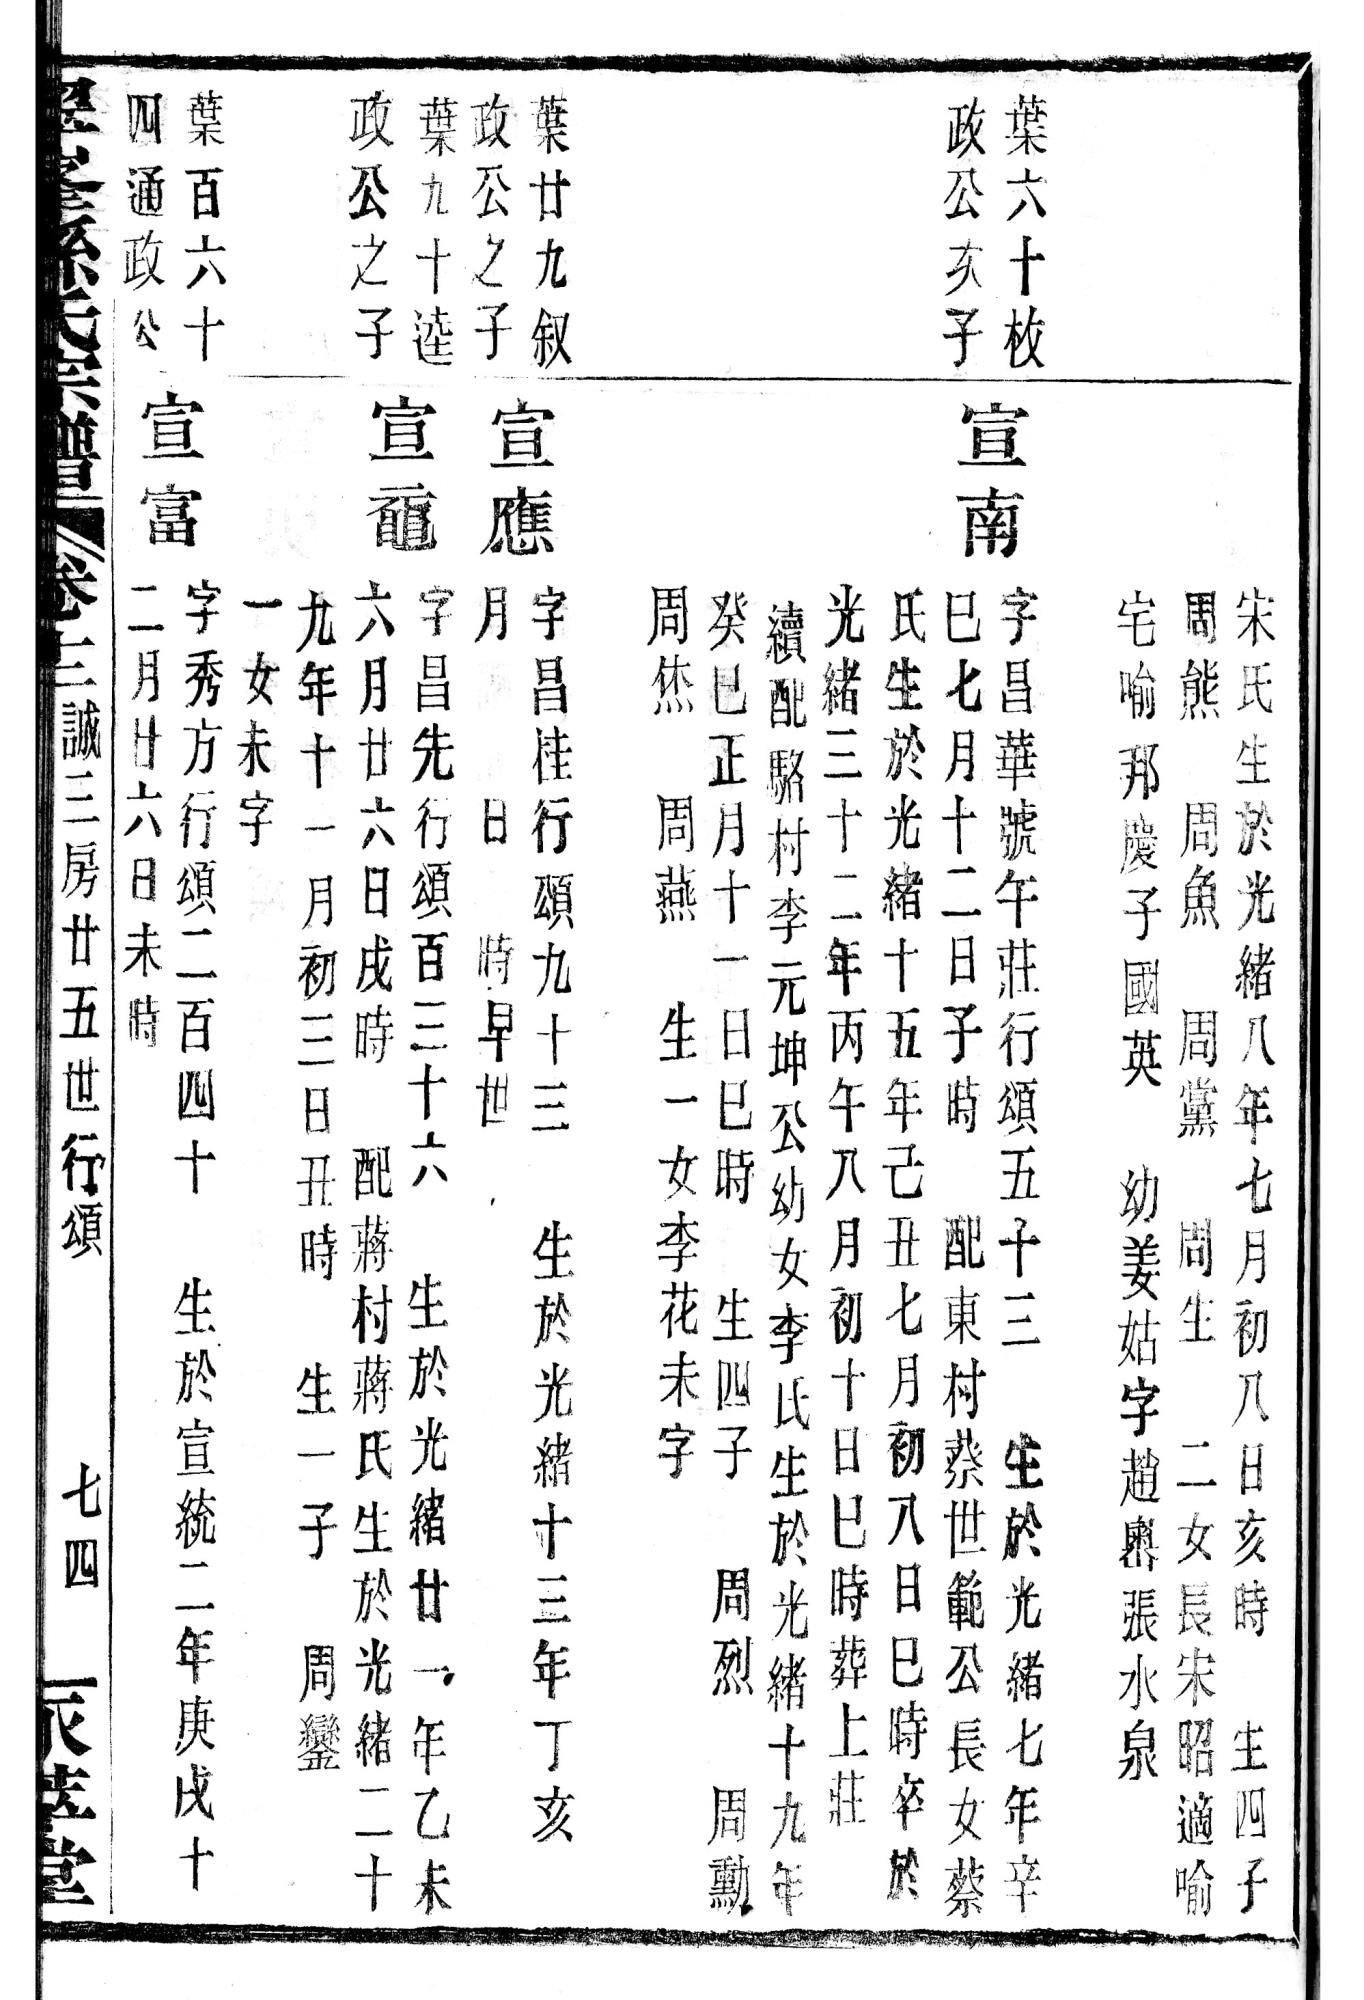 宋氏生於光緒八年七月初八日亥時　生四子
周熊　周魚　周黨　周生　二女長宋昭適喻
宅喻邦慶子國英　幼姜姑字趙嶴張水泉
葉六十枚
政公亥子
宣南
字昌華號午莊行頌五十三　生於光緒七年辛
巳七月十二日子時　配東村蔡世範公長女蔡
氏生於光緒十五年己丑七月初八日巳時卒於
光緒三十二年丙午八月初十日巳時葬上莊
續配駱村李元坤公幼女李氏生於光緒十九年
癸巳正月十一日巳時　生四子　周烈　周勳
周烋　周燕　生一女李花未字
葉廿九叙
政公之子
宣應
字昌桂行頌九十三　生於光緒十三年丁亥
月　日　時早世
葉九十逵
政公之子
宣黿
字昌先行頌百三十六　生於光緒廿一年乙未
六月廿六日戌時　配蔣村蔣氏生於光緒二十
九年十一月初三日丑時　生一子　周鑾
一女未字
葉百六十
四通政公
宣富
字秀方行頌二百四十　生於宣統二年庚戌十
二月廿六日未時
孫氏宗譜　卷　誠三房廿五世行頌　七四　堂